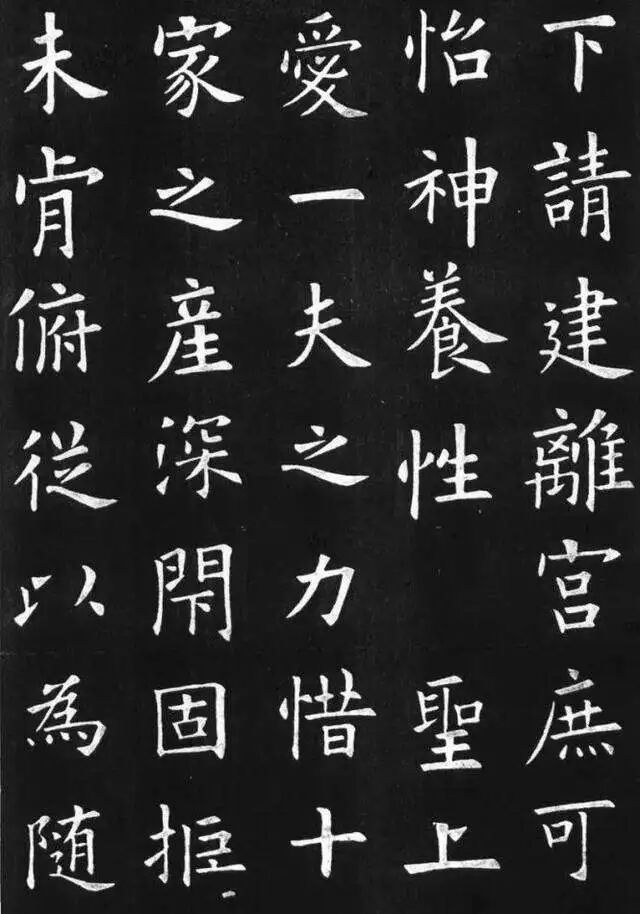 下請建離宮庶可
怡神養性聖上
愛一夫之力惜十
家之産深閇固拒
未肯俯從以為随